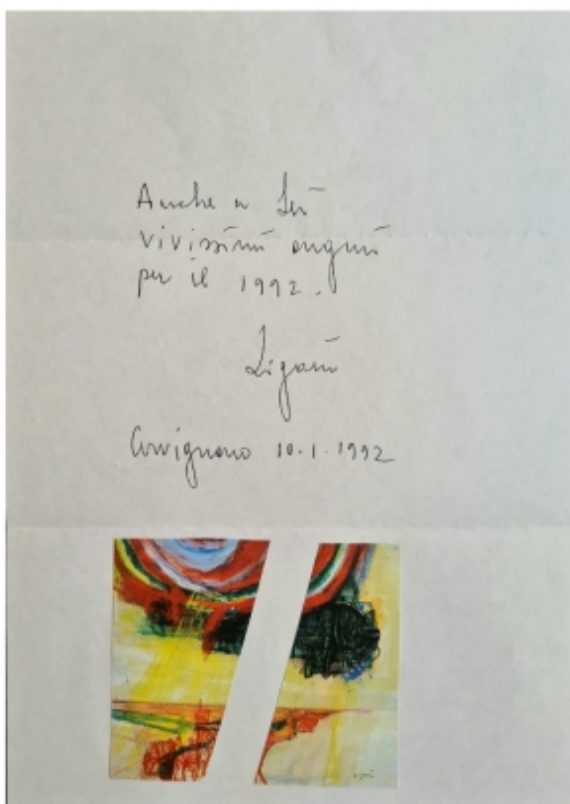 Anche a Lei
vivissimi auguri
per il 1992.
Zigaina
Cervignano 10.1.1992